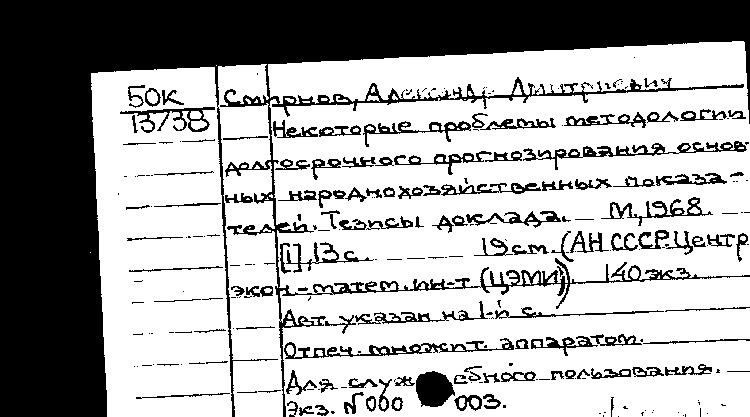 БОК Смирнов, Александр Дмитриевич
13738 Некоторые проблемы методологии
долгосрочного прогнозирования основ
ных народнохозяйственных показа-
телей. Тезисы доклада. М, 1968.
[1], 13 с. 19 см. (АН СССР. Центр
экон.-матем. ин-т (ЦЭМИ)). 140 экз.
Авт. указан на 1-й с.
Отпеч. множит. аппаратом.
Для служебного пользования.
Экз. N 000 003.